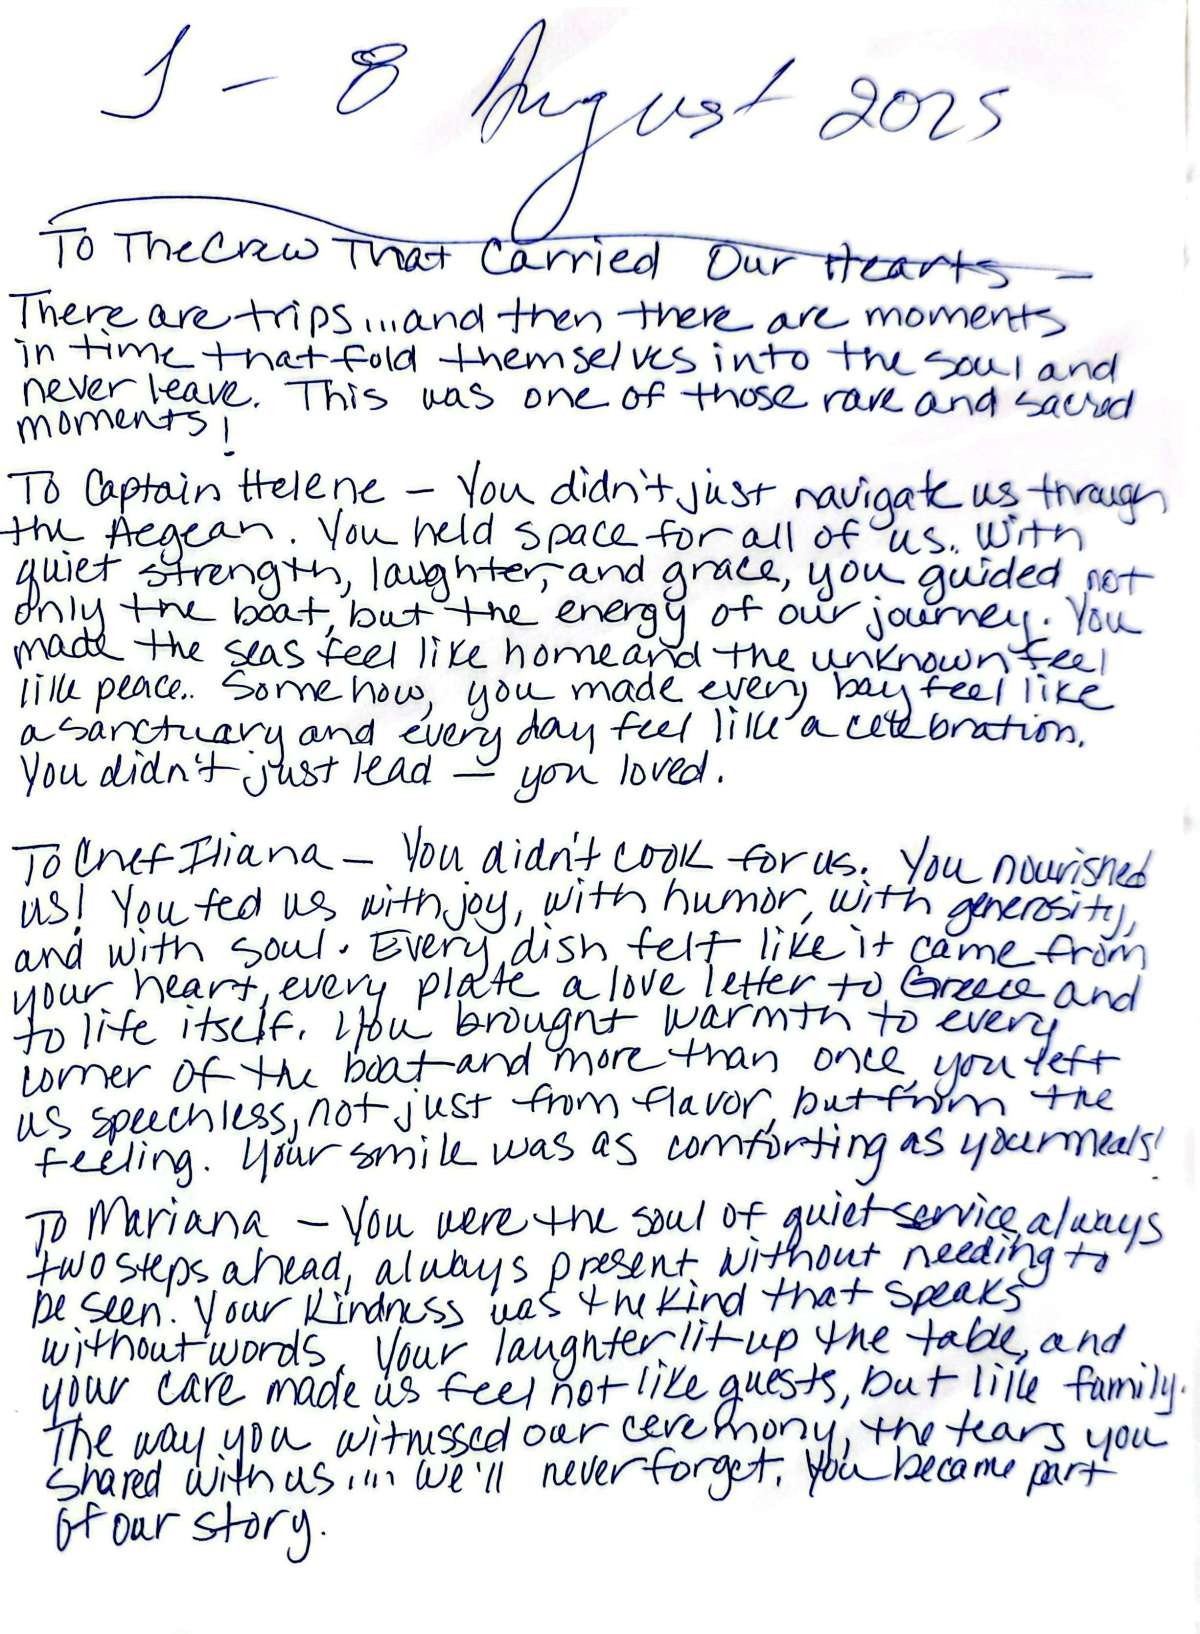 1 - 8 August 2025
To The Crew That Carried Our Hearts -
There are trips...and then there are moments
in time that fold themselves into the soul and
never leave. This was one of those rare and sacred
moments!
To Captain Helene - You didn't just navigate us through
the Aegean. You held space for all of us. With
quiet strength, laughter, and grace, you guided not
only the boat, but the energy of our journey. You
made the seas feel like home and the unknown feel
like peace.. Somehow, you made every bay feel like
a sanctuary and every day feel like a celebration.
You didn't just lead - you loved.
To Chef Iliana - You didn't cook for us. You nourished
us! You fed us with joy, with humor, with generosity,
and with soul. Every dish felt like it came from
your heart, every plate a love letter to Greece and
to life itself. You brought warmth to every
corner of the boat and more than once, you left
us speechless, not just from flavor, but from the
feeling. Your smile was as comforting as your meals!
To Mariana - You were the soul of quiet service, always
two steps ahead, always present without needing to
be seen. Your kindness was the kind that speaks
without words. Your laughter lit up the table, and
your care made us feel not like guests, but like family.
The way you witnessed our ceremony, the tears you
shared with us.... we'll never forget. You became part
of our story.